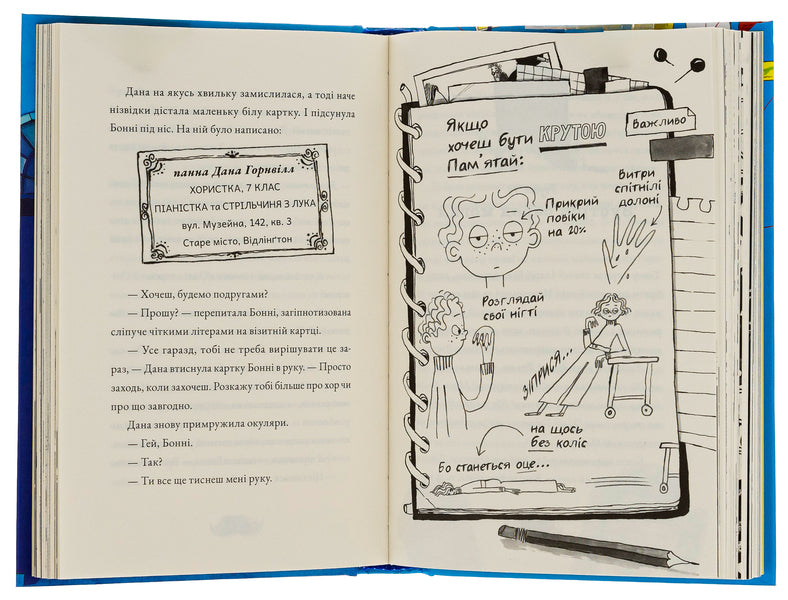 Дана на якусь хвильку замислилася, а тоді наче
нізвідки дістала маленьку білу картку. І підсунула
Бонні під ніс. На ній було написано:
панна Дана Горнвілл
ХОРИСТКА, 7 КЛАС
ПІАНІСТКА та СТРІЛЬЧИНЯ З ЛУКА
вул. Музейна, 142, кв. 3
Старе місто, Відлінґтон
— Хочеш, будемо подругами?
— Прошу? — перепитала Бонні, загіпнотизована
сліпуче чіткими літерами на візитній картці.
— Усе гаразд, тобі не треба вирішувати це за-
раз, — Дана втиснула картку Бонні в руку. — Просто
заходь, коли захочеш. Розкажу тобі більше про хор чи
про що завгодно.
Дана знову примружила окуляри.
— Гей, Бонні.
— Так?
— Ти все ще тиснеш мені руку.
Якщо
хочеш бути КРУТОЮ
Пам'ятай:
Важливо
Прикрий
повіки
на 20%
Витри
спітнілі
долоні
Розглядай
свої нігті
ЗІПРИСЯ...
на щось
без коліс
Бо станеться оце...